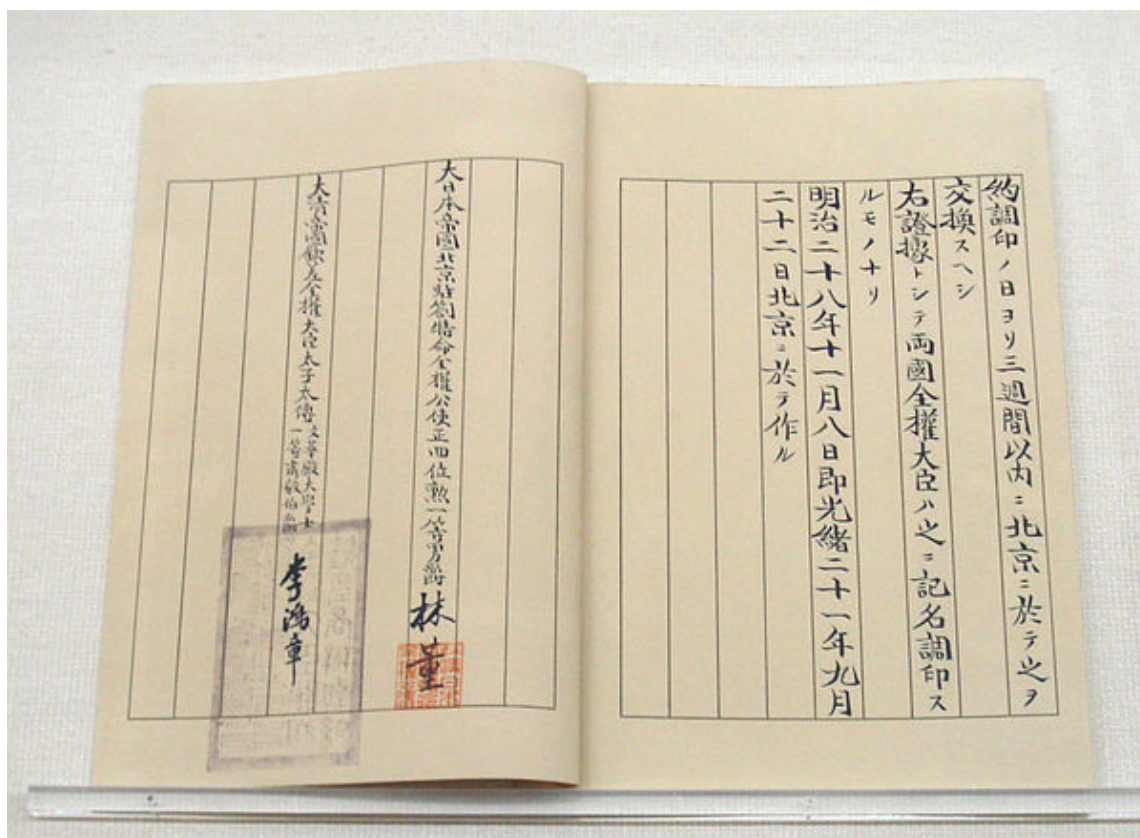 約調印ノ日ヨリ三週間以内ニ北京ニ於テ之ヲ
交換スヘシ
右證據トシテ両國全權大臣ハ之ニ記名調印ス
ルモノナリ
明治二十八年十一月八日即光緒二十一年九月
二十二日北京ニ於テ作ル
大日本帝國北京駐箚特命全權公使正四位勲一等男爵林董
大清帝國欽差全權大臣太子太傅文華殿大學士
一等肅毅伯爵
李鴻章